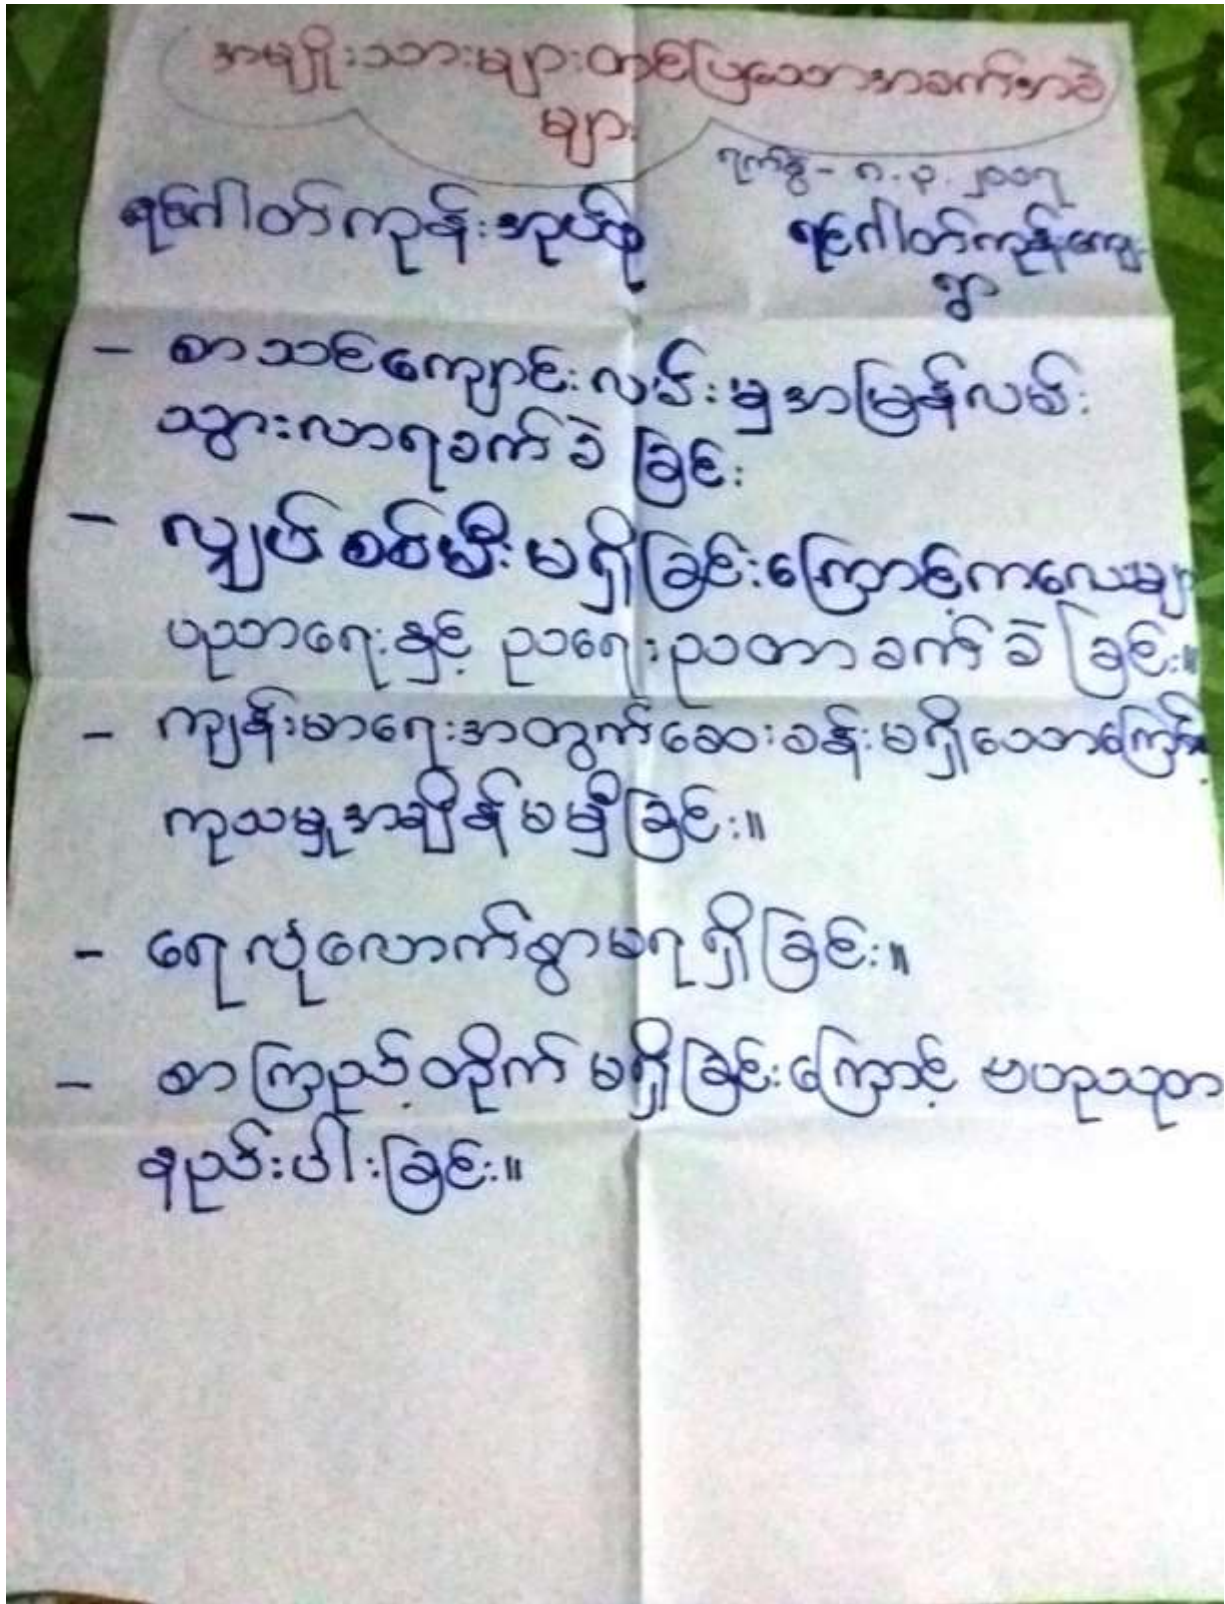 အမျိုးသားများတင်ပြသောအခက်အခဲ
များ
ရက်စွဲ - ၈.၃.၂၀၁၇
ရင်ဂါတ်ကုန်းအုပ်စု
ရင်ဂါတ်ကုန်းကျေး
ရွာ
- စာသင်ကျောင်းလမ်းမှအမြန်လမ်း
သွားလာရခက်ခဲခြင်း
- လျှပ်စစ်မီးမရှိခြင်းကြောင့်ကလေးများ
ပညာရေးနှင့် ညရေးညတာခက်ခဲခြင်း။
- ကျန်းမာရေးအတွက်ဆေးခန်းမရှိသောကြောင့်
ကုသမှုအချိန်မမှီခြင်း။
- ရေလုံလောက်စွာမရရှိခြင်း။
- စာကြည့်တိုက်မရှိခြင်းကြောင့် ဗဟုသုတ
နည်းပါးခြင်း။